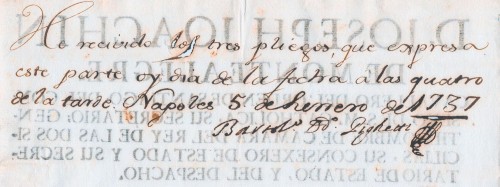 He recivido los tres pliegos, que expresa
este parte oy dia de la fecha a las quatro
de la tarde. Napoles 5 de henrero de 1737
D. JOSEPH JOACHIN
DE MONTEALEGRE
SECRETARIO, GEN-
TILHOMBRE DE CAMARA DEL REY DE LAS DOS SI-
CILIAS, SU CONSEXERO DE ESTADO Y SU SECRE-
TARIO DE ESTADO, Y DEL DESPACHO.